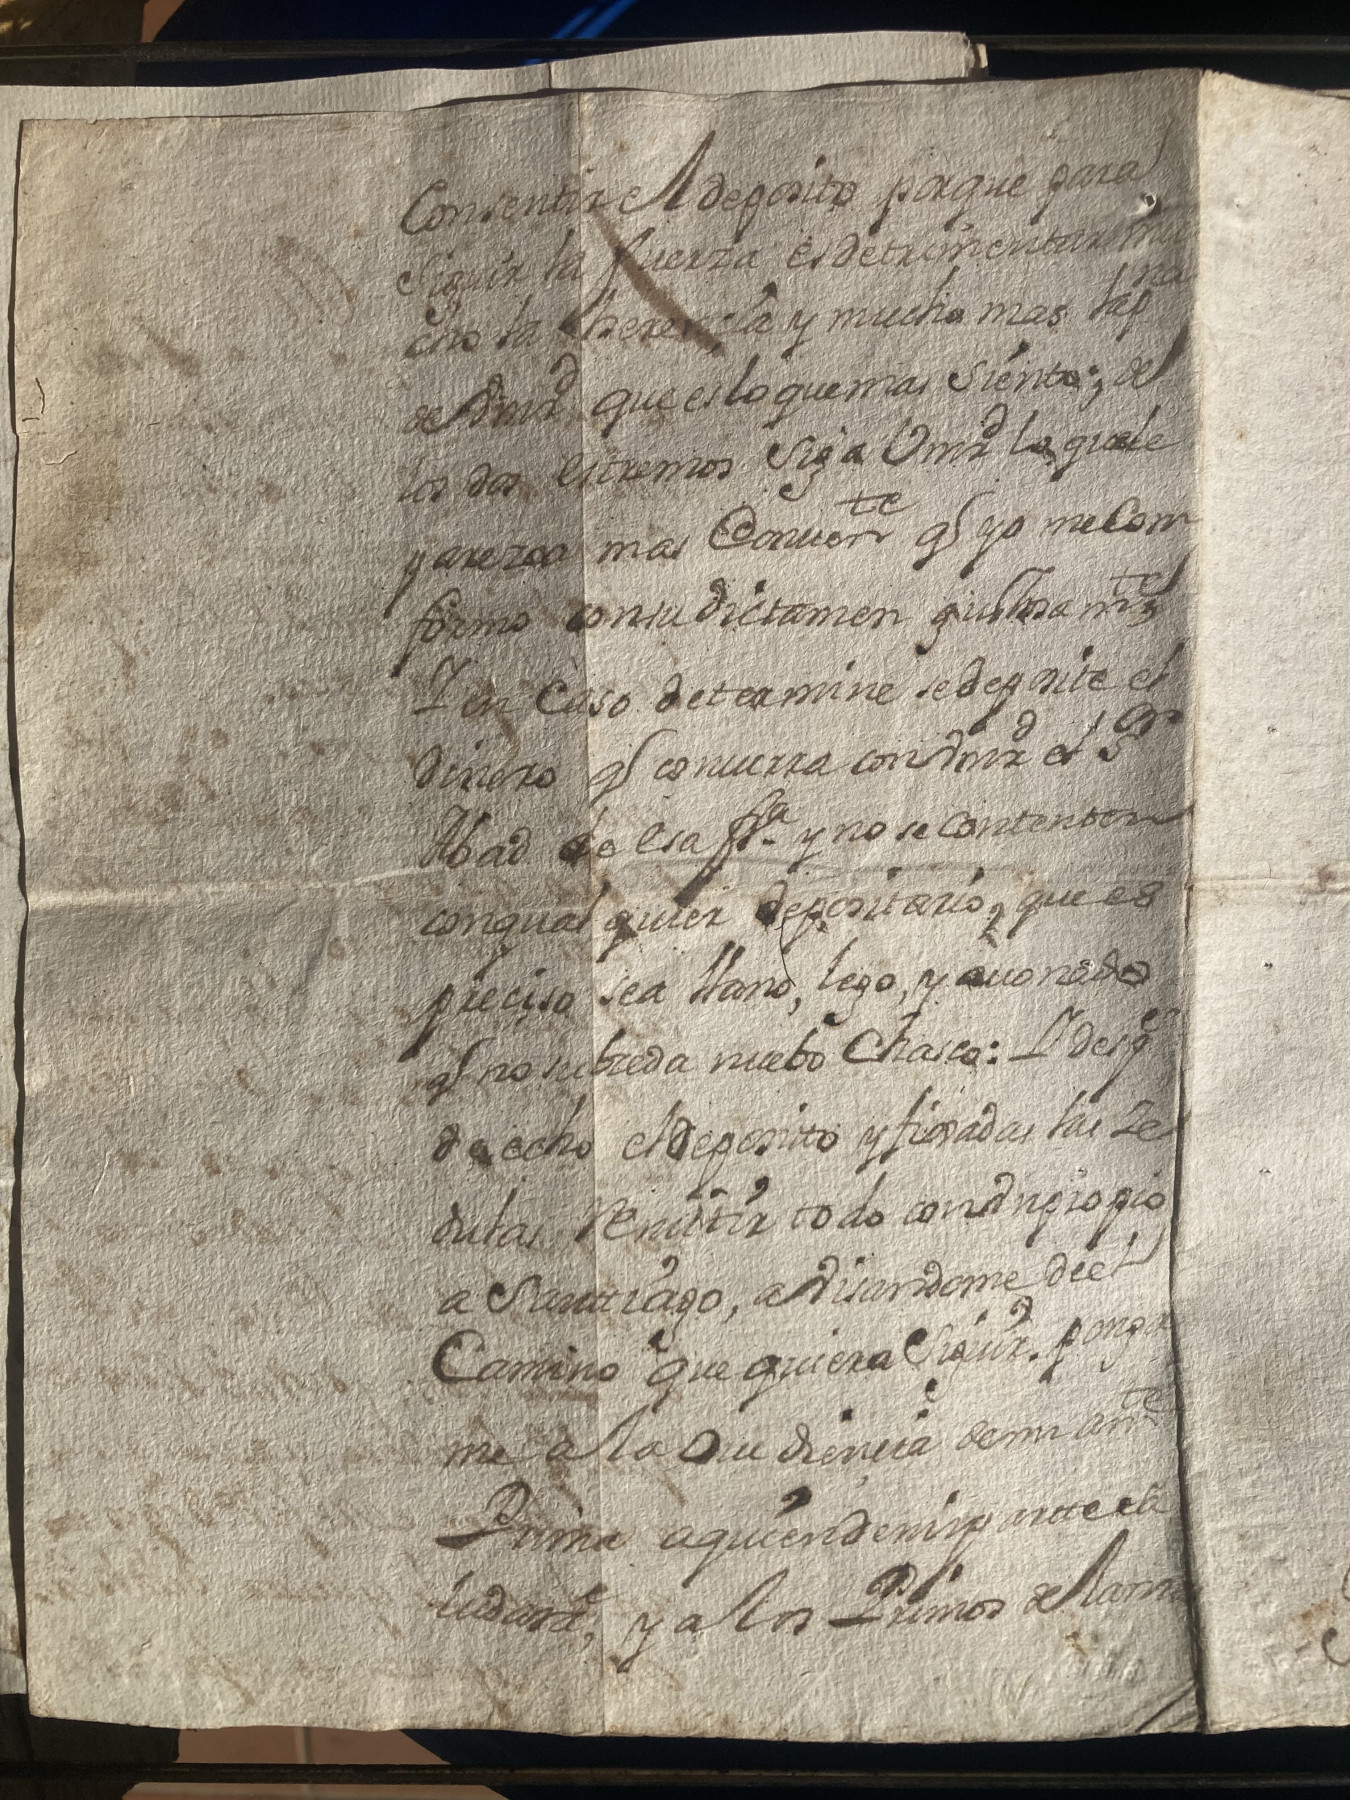 Consentir el deposito porque para
Siguir la fuerza es detrimentar mu
cho la herencia y mucho mas la pna
de Vmrd que es lo que mas Siento; de
los dos estremos Siga Vmrd lo que le
parezca mas Conuente q yo me Com
formo con su dictamen gustosamte;
Y en Caso determine se deposite el
dinero q conuerra con Vmrd el Sor
Abad de esa fra y no se contenten
con qual quier depositario, que es
preciso sea llano, lego, y auonado
q no subzeda nuebo Chasco: Y desq
de echo el deposito y firmadas las Ze
dulas Remitir todo con Vn propio
a Santiago, a Visandome de el
Camino que quiera Siguir. ponga
me a la Ouediencia de mi ante
Prima a quien de mi parte sa
ludará, y a los Primos de